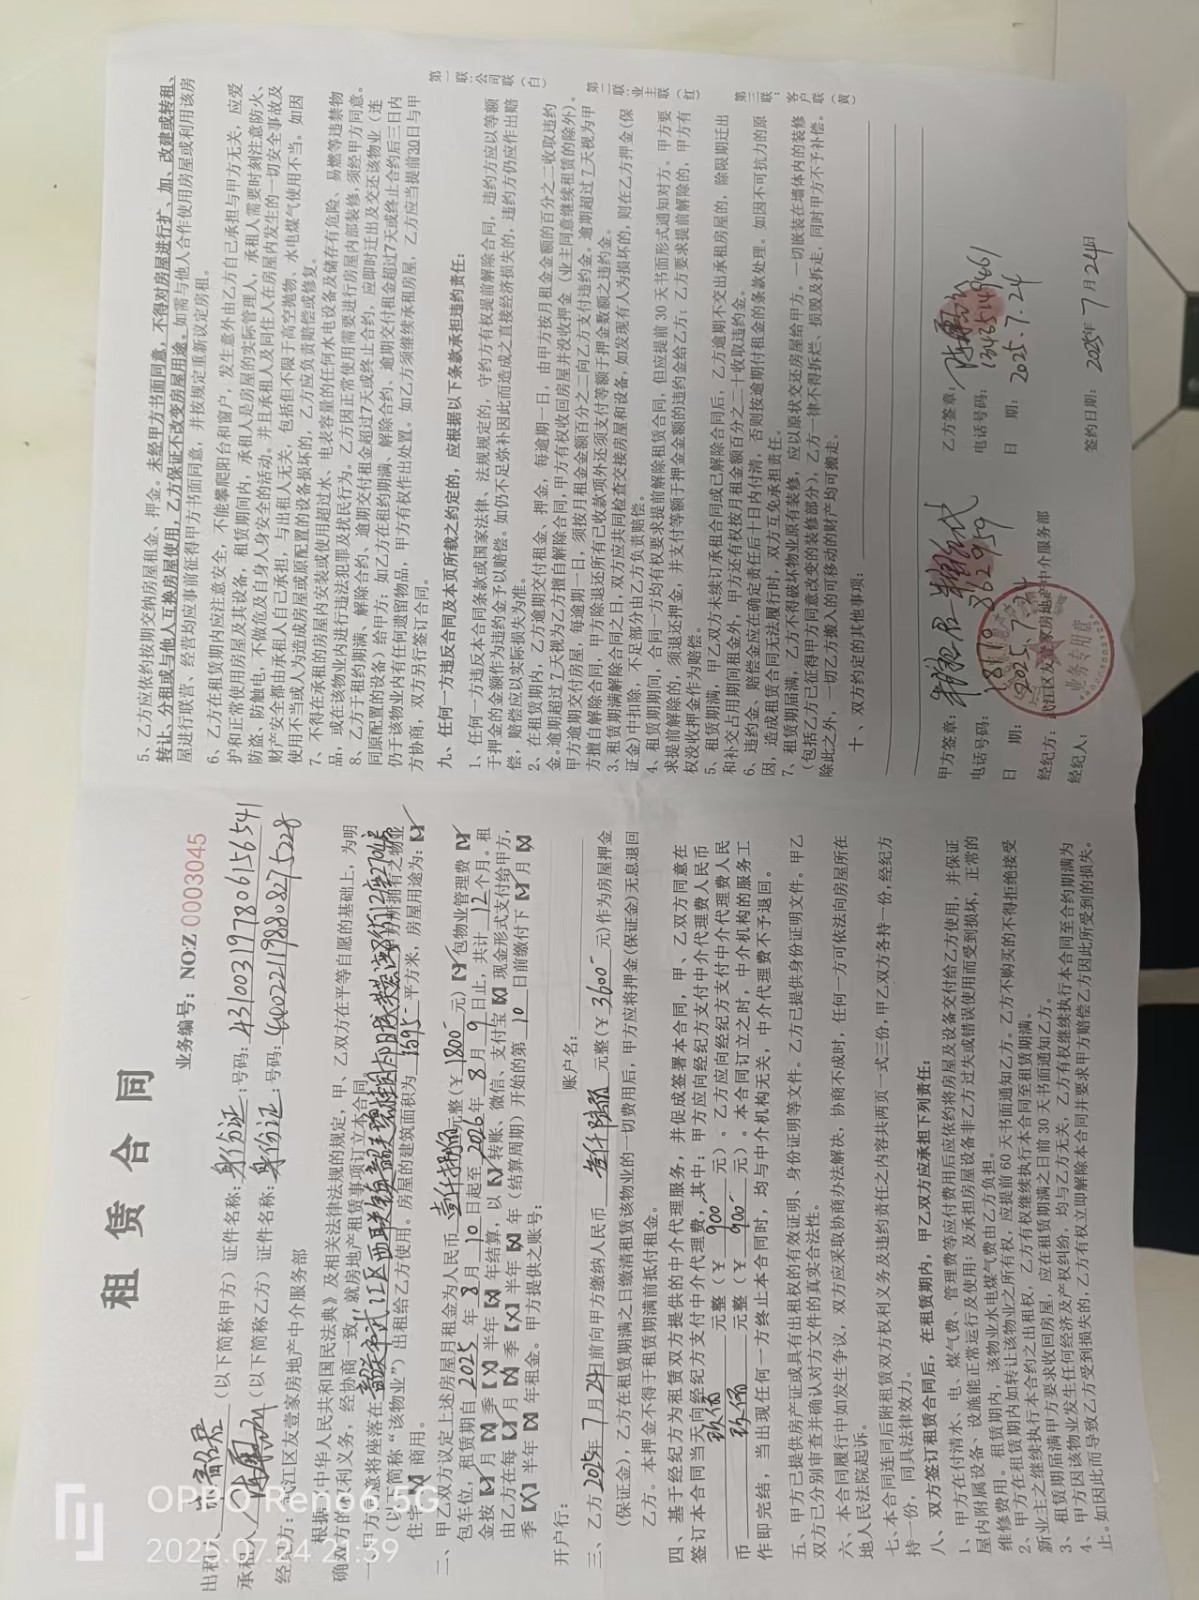 租赁合同
业务编号：NO:Z 0003045
出租人（以下简称甲方）证件名称：身份证：号码：431003197806156541
承租人（以下简称乙方）证件名称：身份证：号码：440221198808275228
经纪方：武江区友壹家房地产中介服务部
根据《中华人民共和国民法典》及相关法律法规的规定，甲、乙双方在平等自愿的基础上，为明
确双方的权利义务，经协商一致，就房地产租赁事项订立本合同。
一、甲方愿将座落在韶关市武江区西联镇 所拥有之物业
（以下简称“该物业”）出租给乙方使用。房屋的建筑面积为 平方米，房屋用途为：【✓】
住宅【×】商用。
二、甲乙双方议定上述房屋月租金为人民币壹仟捌佰元整（￥1800-元）【✓】包物业管理费【×】
包车位，租赁期自2025年8月10日起至2026年8月9日止，共计12个月。租
金按【✓】月【×】季【×】半年【×】年结算，以【✓】转账、微信、支付宝【×】现金形式支付给甲方，
由乙方在每【✓】月【×】季【×】半年【×】年（结算周期）开始的第10日前缴付下【✓】月【×】
季【×】半年【×】年租金。甲方提供之账号：
开户行： 账户名：
三、乙方2025年7月24日前向甲方缴纳人民币叁仟陆佰元整（￥3600-元）作为房屋押金
（保证金），乙方在租赁期满之日缴清租赁该物业的一切费用后，甲方应将押金（保证金）无息退回
乙方。本押金不得于租赁期满前抵付租金。
四、基于经纪方为租赁双方提供的中介代理服务，并促成签署本合同，甲、乙双方同意在
签订本合同当天向经纪方支付中介代理费，其中：甲方应向经纪方支付中介代理费人民币
玖佰元整（￥900-元）。乙方应向经纪方支付中介代理费人民
币玖佰元整（￥900-元）。本合同订立之时，中介机构的服务工
作即完结，当出现任何一方终止本合同时，均与中介机构无关，中介代理费不予退回。
五、甲方已提供房产证或具有出租权的有效证明、身份证明等文件。乙方已提供身份证明文件。甲乙
双方已分别审查并确认对方文件的真实合法性。
六、本合同履行中如发生争议，双方应采取协商办法解决，协商不成时，任何一方可依法向房屋所在
地人民法院起诉。
七、本合同连同后附租赁双方权利义务及违约责任之内容共两页一式三份，甲乙双方各持一份，经纪方
持一份，同具法律效力。
八、双方签订租赁合同后，在租赁期内，甲乙双方应承担下列责任：
1、甲方在付清水、电、煤气费、管理费等应付费用后应依约将房屋及设备交付给乙方使用，并保证
屋内附属设备、设施能正常运行及使用；及承担房屋设备非乙方过失或错误使用而受到损坏，正常的
维修费用。租赁期内，该物业水电煤气费由乙方负担。
2、甲方在租赁期内如转让该物业之所有权，应提前60天书面通知乙方。乙方不购买的不得拒绝接受
新业主之继续执行本合约之出租权，乙方有权继续执行本合同至租赁期满。
3、租赁期届满甲方要求收回房屋，应在租赁期满之日前30天书面通知乙方。
4、甲方因该物业发生任何经济及产权纠纷，均与乙方无关，乙方有权继续执行本合同至合约期满为
止。如因此而导致乙方受到损失的，乙方有权立即解除本合同并要求甲方赔偿乙方因此所受到的损失。
5、乙方应依约按期交纳房屋租金、押金。未经甲方书面同意，不得对房屋进行扩、加、改建或转租、
转让、分租或与他人互换房屋使用，乙方保证不改变房屋用途。如需与他人合作使用房屋或利用该房
屋进行联营、经营均应事前征得甲方书面同意，并按规定重新议定房租。
6、乙方在租赁期内应注意安全，不能攀爬阳台和窗户，发生意外由乙方自己承担与甲方无关，应爱
护和正常使用房屋及其设备，租赁期间内，承租人是房屋的实际管理人，承租人需要时刻注意防火、
防盗、防触电，不做危及自身人身安全的活动。并且承租人及同住人在房屋内发生的一切安全事故及
财产安全都由承租人自己承担，与出租人无关，包括但不限于高空抛物、水电煤气使用不当。如因
使用不当或人为造成房屋或原配置的设备损坏的，乙方应负责赔偿或修复。
7、不得在承租的房屋内安装或使用超过水、电表容量的任何水电设备及储存有危险、易燃等违禁物
品，或在该物业内进行违法犯罪及扰民行为。乙方因正常使用需要进行房屋内部装修，须经甲方同意。
8、乙方于租约期满、解除合约、逾期交付租金超过7天或终止合约，应即时迁出及交还该物业（连
同原配置的设备）给甲方；如乙方在租约期满、解除合约、逾期交付租金超过7天或终止合约后三日内
仍于该物业内有任何遗留物品，甲方有权作出处置。如乙方须继续承租房屋，乙方应当提前30日与甲
方协商，双方另行签订合同。
九、任何一方违反合同及本页所载之约定的，应根据以下条款承担违约责任：
1、任何一方违反本合同条款或国家法律、法规规定的，守约方有权提前解除合同，违约方应以等额
于押金的金额作为违约金予以赔偿。如仍不足弥补因此而造成之直接经济损失的，违约方仍应作出赔
偿，赔偿应以实际损失为准。
2、在租赁期内，乙方逾期交付租金、押金，每逾期一日，由甲方按月租金金额的百分之二收取违约
金。逾期超过7天视为乙方擅自解除合同，甲方有权收回房屋并没收押金（业主同意继续租赁的除外）。
甲方逾期交付房屋，每逾期一日，须按月租金金额百分之二向乙方支付违约金。逾期超过7天视为甲
方擅自解除合同，甲方除退还所有已收款项外还须支付等额于押金数额之违约金。
3、租赁期满解除合同之日，双方应共同检查交接房屋和设备，如发现有人为损坏的，则在乙方押金（保
证金）中扣除，不足部分由乙方负责赔偿。
4、租赁期期间，合同一方均有权要求提前解除租赁合同，但应提前30天书面形式通知对方。甲方要
求提前解除的，须退还押金，并支付等额于押金金额的违约金给乙方；乙方要求提前解除的，甲方有
权没收押金作为赔偿。
5、租赁期满，甲乙双方未续订承租合同或已解除合同后，乙方逾期不交出承租房屋的，除限期迁出
和补交占用期间租金外，甲方还有权按月租金额百分之二十收取违约金。
6、违约金、赔偿金应在确定责任后十日内付清，否则按逾期付租金的条款处理。如因不可抗力的原
因，造成租赁合同无法履行时，双方互免承担责任。
7、租赁期届满，乙方不得破坏物业原有装修，应以原状交还房屋给甲方。一切嵌装在墙体内的装修
（包括乙方已征得甲方同意改变的装修部分），乙方一律不得拆烂、损毁及拆走，同时甲方不予补偿。
除此之外，一切乙方搬入的可移动的财产均可搬走。
十、双方约定的其他事项：
甲方签章： 乙方签章：
电话号码： 电话号码：
日 期：2025.7.24 日 期：2025.7.24
经纪方：武江区友壹家房地产中介服务部
经纪人： 签约日期：2025年7月24日
业务专用章
第一联：公司联（白）
第二联：业主联（红）
第三联：客户联（黄）
OPPO Reno6 5G
2025.07.24 21:39